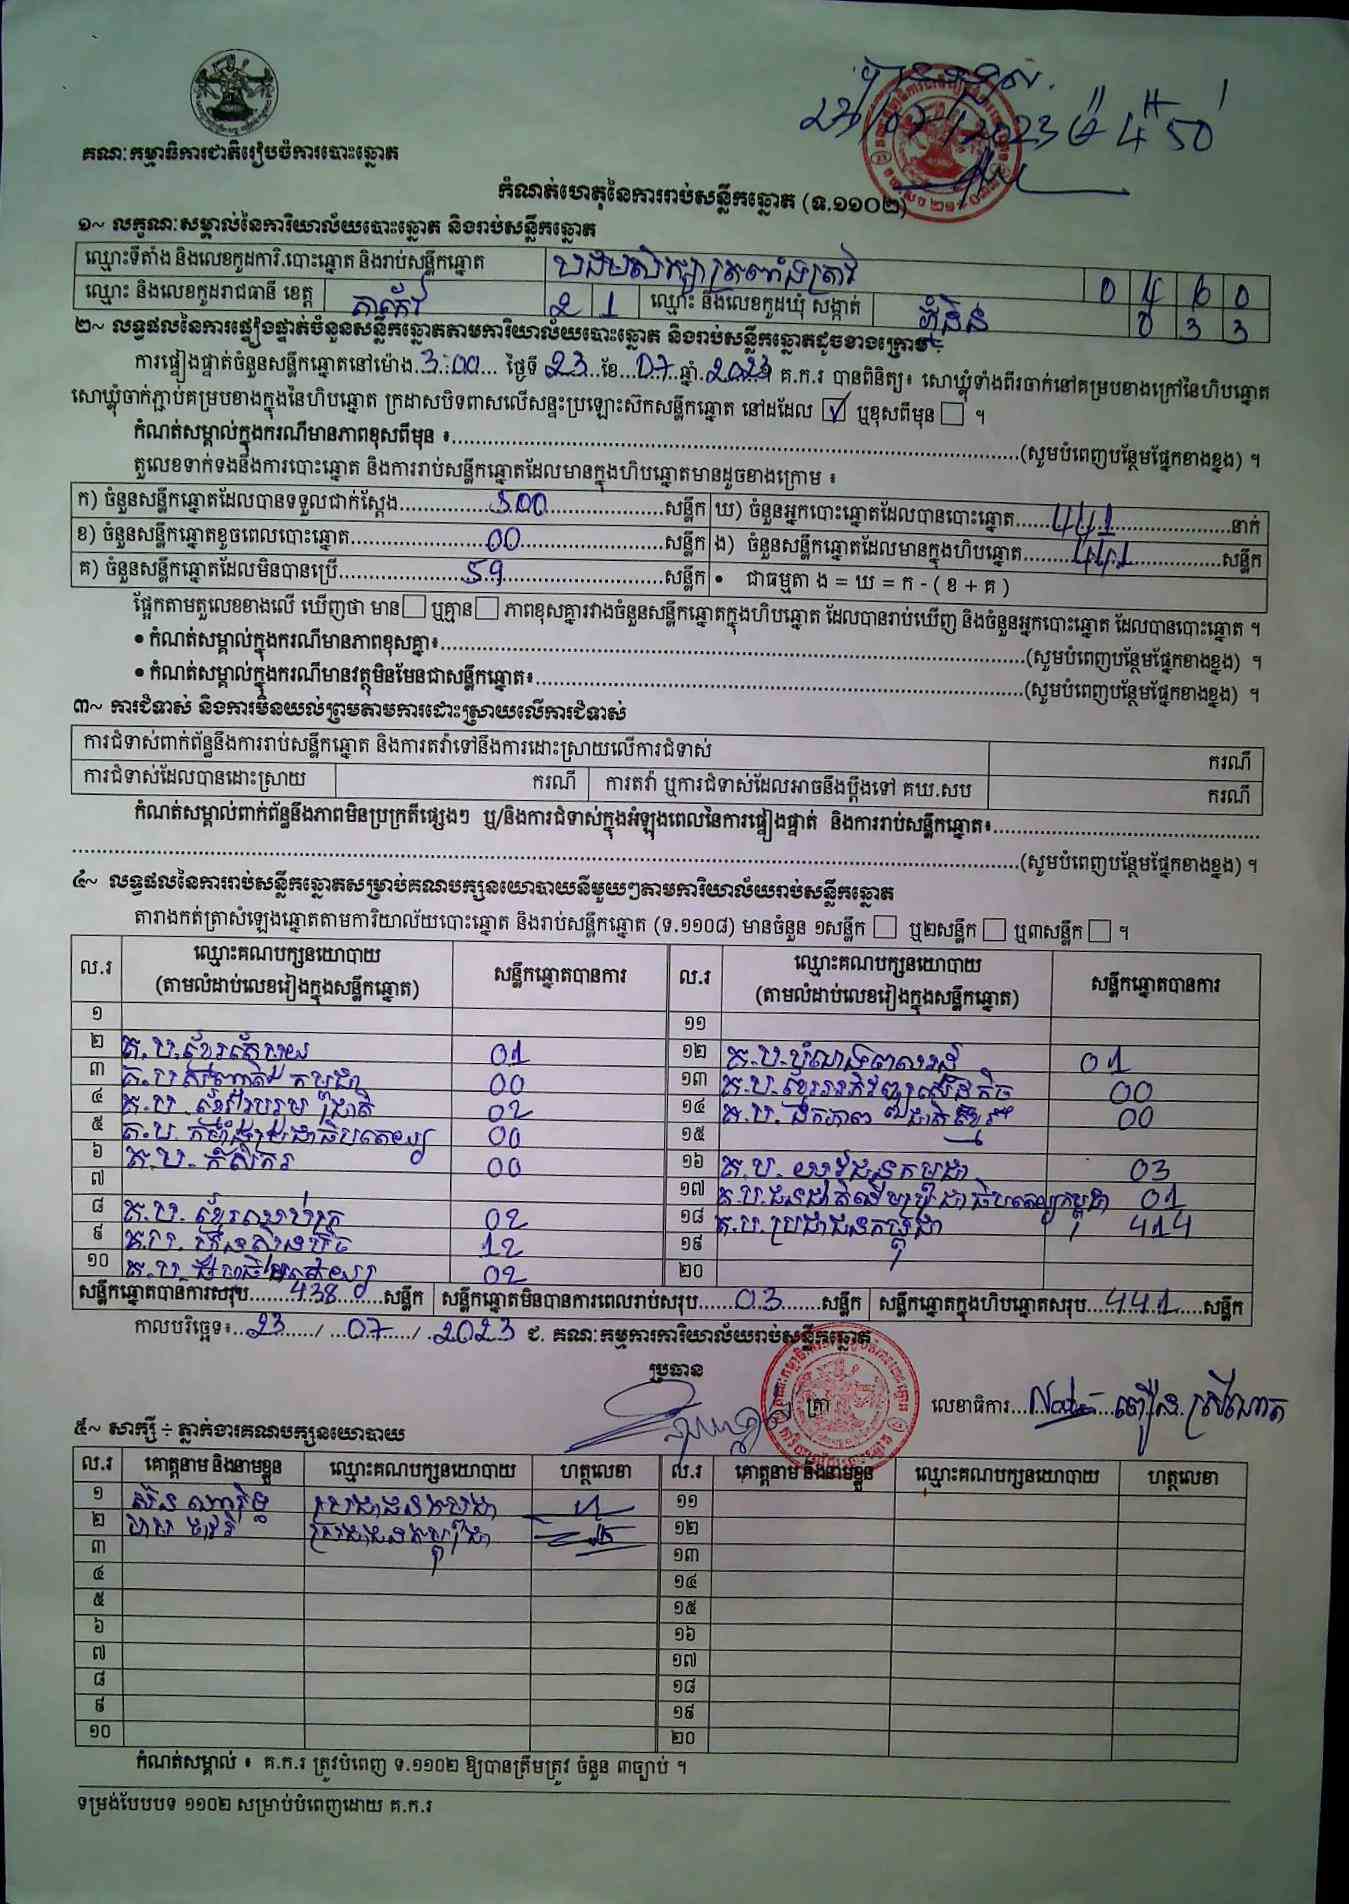 គណៈកម្មាធិការជាតិរៀបចំការបោះឆ្នោត
2023 ម៉ 4 50
កំណត់ហេតុនៃការរាប់សន្លឹកឆ្នោត (ទ.១១០២)
១~ លក្ខណៈសម្គាល់នៃការិយាល័យបោះឆ្នោត និងរាប់សន្លឹកឆ្នោត
ឈ្មោះទីតាំង និងលេខកូដការិ.បោះឆ្នោត និងរាប់សន្លឹកឆ្នោត បឋមសិក្សាត្រពាំងត្រាវ 0 4 6 0
ឈ្មោះ និងលេខកូដរាជធានី ខេត្ត តាកែវ 2 1 ឈ្មោះ និងលេខកូដឃុំ សង្កាត់ 0 3 3
២~ លទ្ធផលនៃការផ្ទៀងផ្ទាត់ចំនួនសន្លឹកឆ្នោតតាមការិយាល័យបោះឆ្នោត និងរាប់សន្លឹកឆ្នោតដូចខាងក្រោម៖
ការផ្ទៀងផ្ទាត់ចំនួនសន្លឹកឆ្នោតនៅម៉ោង 3:00 ថ្ងៃទី 23 ខែ 07 ឆ្នាំ 2023 គ.ក.រ បានពិនិត្យ៖ សោឃ្លុំទាំងពីរចាក់នៅគម្របខាងក្រៅនៃហិបឆ្នោត
សោឃ្លុំចាក់ភ្ជាប់គម្របខាងក្នុងនៃហិបឆ្នោត ក្រដាសបិទពាសលើសន្ទះប្រឡោះស៊កសន្លឹកឆ្នោត នៅដដែល ☑ ឬខុសពីមុន ☐ ។
កំណត់សម្គាល់ក្នុងករណីមានភាពខុសពីមុន ៖ (សូមបំពេញបន្ថែមផ្នែកខាងខ្នង) ។
តួលេខទាក់ទងនឹងការបោះឆ្នោត និងការរាប់សន្លឹកឆ្នោតដែលមានក្នុងហិបឆ្នោតមានដូចខាងក្រោម ៖
ក) ចំនួនសន្លឹកឆ្នោតដែលបានទទួលជាក់ស្តែង 500 សន្លឹក ឃ) ចំនួនអ្នកបោះឆ្នោតដែលបានបោះឆ្នោត 441 នាក់
ខ) ចំនួនសន្លឹកឆ្នោតខូចពេលបោះឆ្នោត 00 សន្លឹក ង) ចំនួនសន្លឹកឆ្នោតដែលមានក្នុងហិបឆ្នោត 441 សន្លឹក
គ) ចំនួនសន្លឹកឆ្នោតដែលមិនបានប្រើ 59 សន្លឹក • ជាធម្មតា ង = ឃ = ក - ( ខ + គ )
ផ្អែកតាមតួលេខខាងលើ ឃើញថា មាន ☐ ឬគ្មាន ☐ ភាពខុសគ្នារវាងចំនួនសន្លឹកឆ្នោតក្នុងហិបឆ្នោត ដែលបានរាប់ឃើញ និងចំនួនអ្នកបោះឆ្នោត ដែលបានបោះឆ្នោត ។
• កំណត់សម្គាល់ក្នុងករណីមានភាពខុសគ្នា៖ (សូមបំពេញបន្ថែមផ្នែកខាងខ្នង) ។
• កំណត់សម្គាល់ក្នុងករណីមានវត្ថុមិនមែនជាសន្លឹកឆ្នោត៖ (សូមបំពេញបន្ថែមផ្នែកខាងខ្នង) ។
៣~ ការជំទាស់ និងការមិនយល់ព្រមតាមការដោះស្រាយលើការជំទាស់
ការជំទាស់ពាក់ព័ន្ធនឹងការរាប់សន្លឹកឆ្នោត និងការតវ៉ាទៅនឹងការដោះស្រាយលើការជំទាស់ ករណី
ការជំទាស់ដែលបានដោះស្រាយ ករណី ការតវ៉ា ឬការជំទាស់ដែលអាចនឹងប្តឹងទៅ គឃ.សប ករណី
កំណត់សម្គាល់ពាក់ព័ន្ធនឹងភាពមិនប្រក្រតីផ្សេងៗ ឬ/និងការជំទាស់ក្នុងអំឡុងពេលនៃការផ្ទៀងផ្ទាត់ និងការរាប់សន្លឹកឆ្នោត៖
(សូមបំពេញបន្ថែមផ្នែកខាងខ្នង) ។
៤~ លទ្ធផលនៃការរាប់សន្លឹកឆ្នោតសម្រាប់គណបក្សនយោបាយនីមួយៗតាមការិយាល័យរាប់សន្លឹកឆ្នោត
តារាងកត់ត្រាសំឡេងឆ្នោតតាមការិយាល័យបោះឆ្នោត និងរាប់សន្លឹកឆ្នោត (ទ.១១០៨) មានចំនួន ១សន្លឹក ☐ ឬ២សន្លឹក ☐ ឬ៣សន្លឹក ☐ ។
ល.រ ឈ្មោះគណបក្សនយោបាយ សន្លឹកឆ្នោតបានការ ល.រ ឈ្មោះគណបក្សនយោបាយ សន្លឹកឆ្នោតបានការ
(តាមលំដាប់លេខរៀងក្នុងសន្លឹកឆ្នោត) (តាមលំដាប់លេខរៀងក្នុងសន្លឹកឆ្នោត)
១ ១១
២ គ.ប.ខ្មែរតែមួយ 01 ១២ គ.ប. 01
៣ គ.ប.សញ្ជាតិកម្ពុជា 00 ១៣ គ.ប.ខ្មែរអភិវឌ្ឍសេដ្ឋកិច្ច 00
៤ គ.ប. ខ្មែររួបរួមជាតិ 02 ១៤ គ.ប. ឯកភាពជាតិខ្មែរ 00
៥ គ.ប. កម្លាំងប្រជាធិបតេយ្យ 00 ១៥
៦ គ.ប. កសិករ 00 ១៦ គ.ប. យុវជនកម្ពុជា 03
៧ ១៧ គ.ប.ជនជាតិដើមប្រជាធិបតេយ្យកម្ពុជា 01
៨ គ.ប. ខ្មែរឈប់ក្រ 02 ១៨ គ.ប.ប្រជាជនកម្ពុជា 414
៩ គ.ប. ហ៊្វុនស៊ិនប៉ិច 12 ១៩
១០ គ.ប. 02 ២០
សន្លឹកឆ្នោតបានការសរុប 438 សន្លឹក សន្លឹកឆ្នោតមិនបានការពេលរាប់សរុប 03 សន្លឹក សន្លឹកឆ្នោតក្នុងហិបឆ្នោតសរុប 441 សន្លឹក
កាលបរិច្ឆេទ៖ 23 / 07 / 2023 ជ. គណៈកម្មការការិយាល័យរាប់សន្លឹកឆ្នោត
ប្រធាន
ត្រា លេខាធិការ
៥~ សាក្សី ÷ ភ្នាក់ងារគណបក្សនយោបាយ
ល.រ គោត្តនាម និងនាមខ្លួន ឈ្មោះគណបក្សនយោបាយ ហត្ថលេខា ល.រ គោត្តនាម និងនាមខ្លួន ឈ្មោះគណបក្សនយោបាយ ហត្ថលេខា
១ ប្រជាជនកម្ពុជា ១១
២ ប្រជាជនកម្ពុជា ១២
៣ ១៣
៤ ១៤
៥ ១៥
៦ ១៦
៧ ១៧
៨ ១៨
៩ ១៩
១០ ២០
កំណត់សម្គាល់ ៖ គ.ក.រ ត្រូវបំពេញ ទ.១១០២ ឱ្យបានត្រឹមត្រូវ ចំនួន ៣ច្បាប់ ។
ទម្រង់បែបបទ ១១០២ សម្រាប់បំពេញដោយ គ.ក.រ